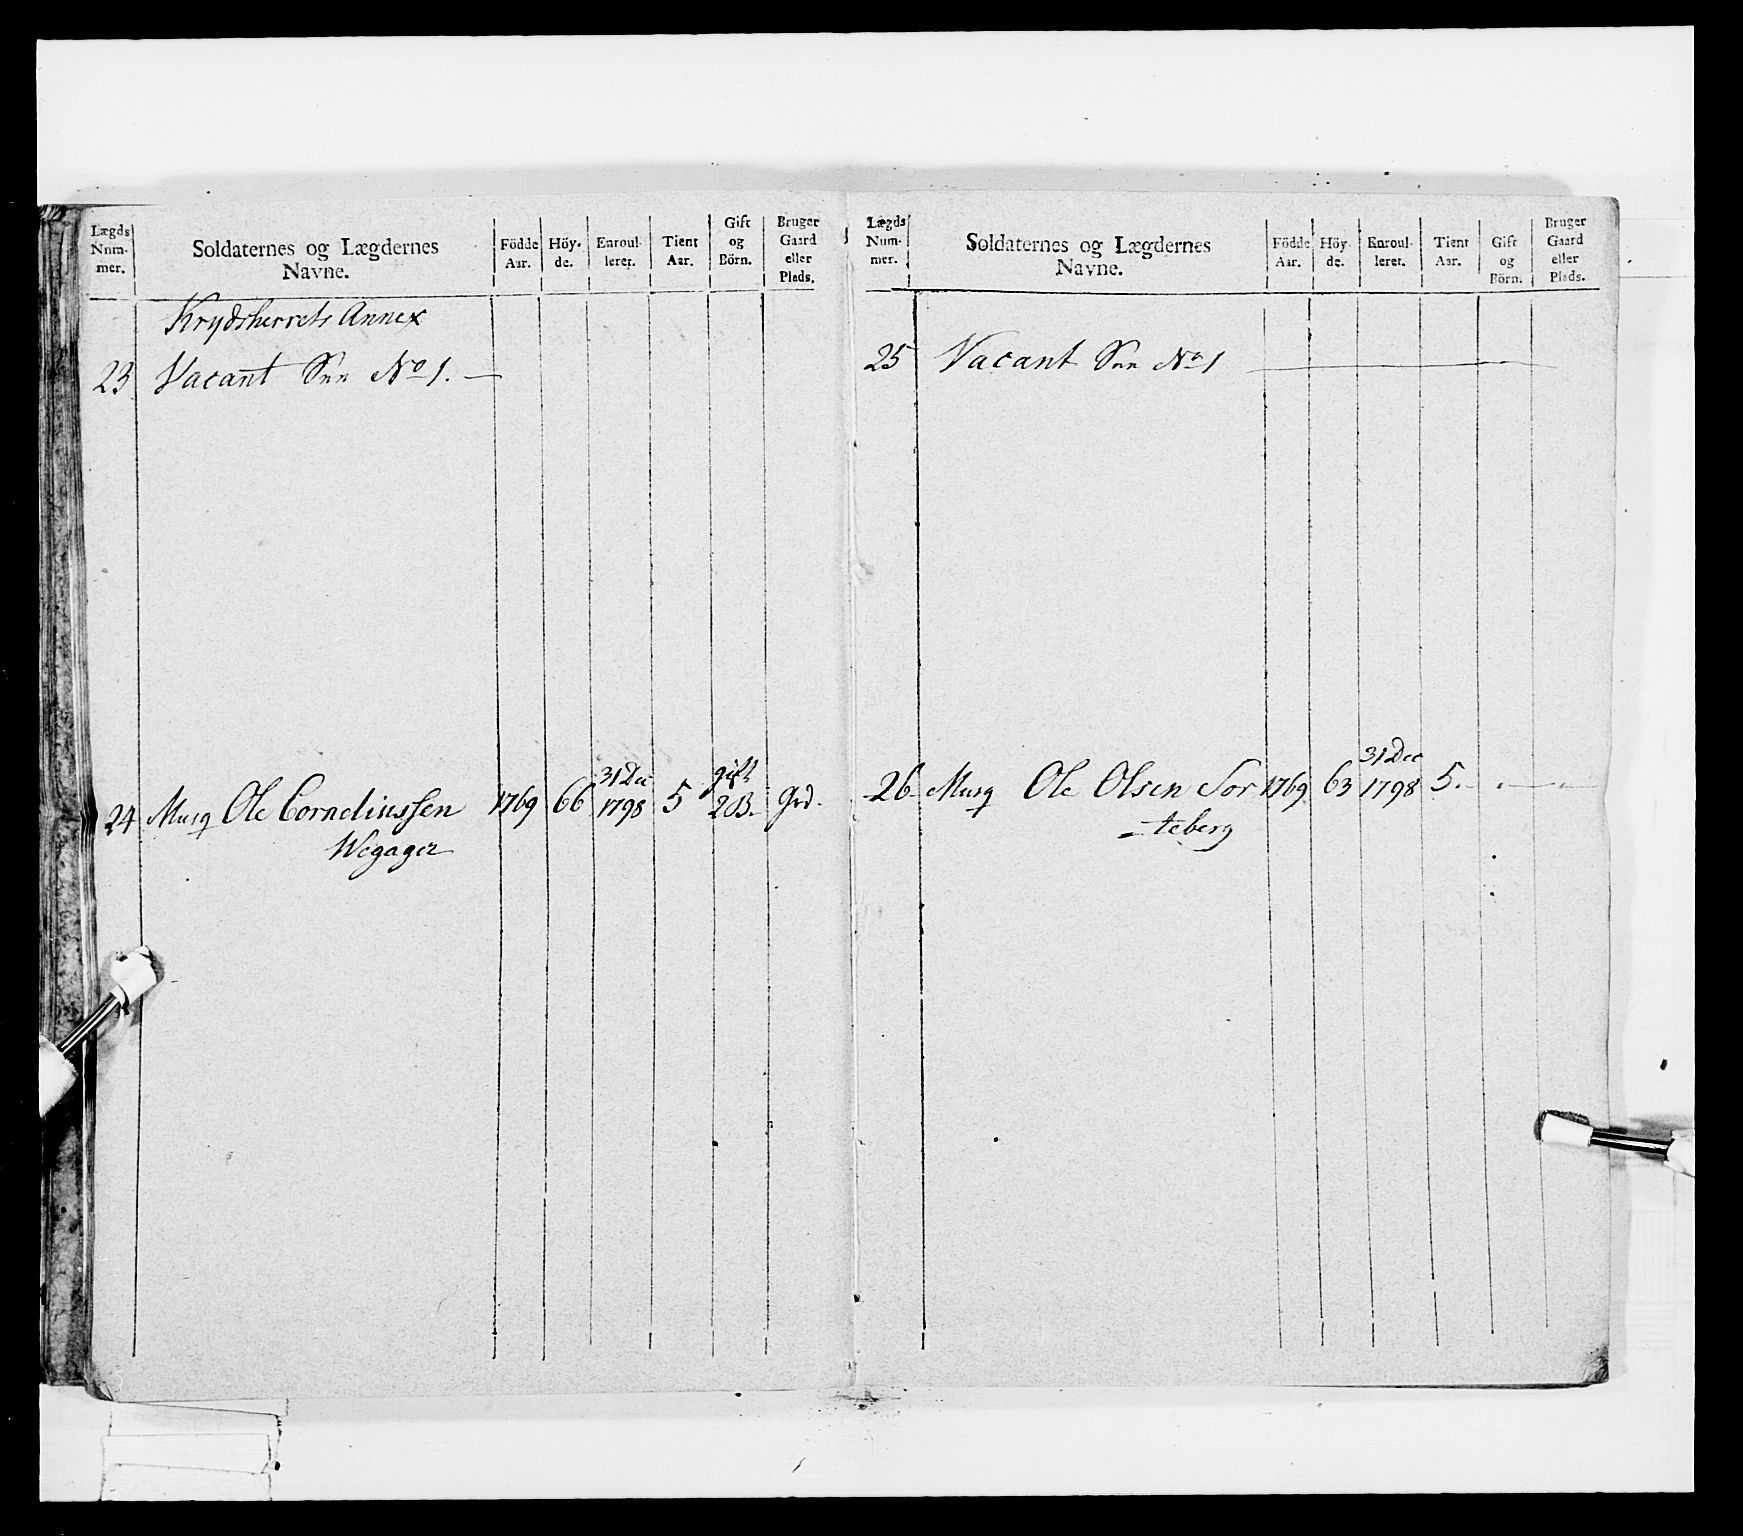 Lægds Num- mer. | Soldaternes og Lægdernes Navne. | Födde Aar. | Höy- de. | Enroul- leret. | Tient Aar. | Gift og Börn. | Bruger Gaard eller Plads.
Krydsherrets Annex
23 Vacant No 1. —
24 Musq Ole Corneliussen 1769 66 31 Dec 1798 5 gift 2 B. Grd.
Wegager
Lægds Num- mer. | Soldaternes og Lægdernes Navne. | Födde Aar. | Höy- de. | Enroul- leret. | Tient Aar. | Gift og Börn. | Bruger Gaard eller Plads.
25 Vacant No 1
26 Musq Ole Olsen Sor 1769 63 31 Dec 1798 5.
teberg